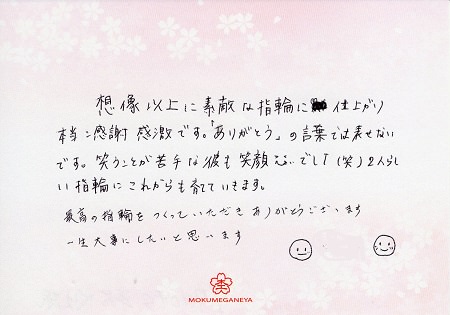 想像以上に素敵な指輪に仕上がり
本当に感謝感激です。「ありがとう」の言葉では表せない
です。笑うことが苦手な彼も笑顔でした(笑)2人らし
い指輪にこれからも育ていきます。
最高の指輪をつくっていただきありがとうございます
一生大事にしたいと思います
MOKUMEGANEYA